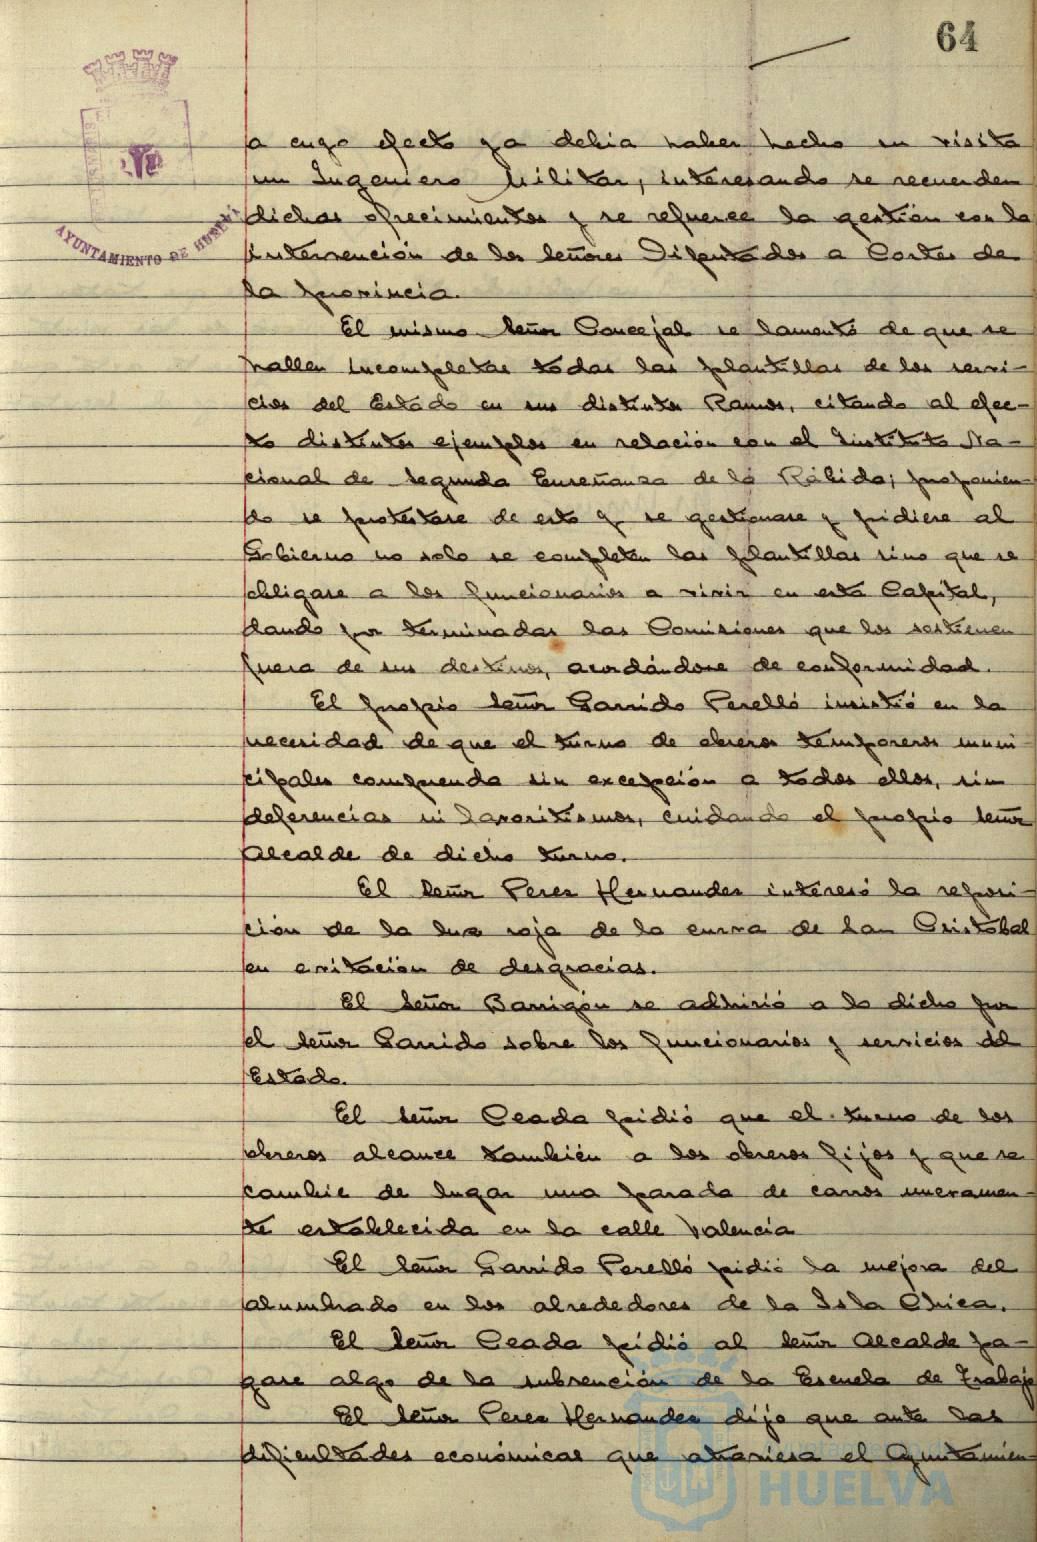 64
AYUNTAMIENTO DE HUELVA
a cuyo efecto ya debia haber hecho su visita
un Ingeniero Militar, interesando se recuerden
dichos ofrecimientos y se refuerce la gestión con la
intervención de los Señores Diputados a Cortes de
la provincia.
El mismo Señor Concejal se lamentó de que se
hallen incompletas todas las plantillas de los servi-
cios del Estado en sus distintos Ramos, citando al efec-
to distintos ejemplos en relación con el Instituto Na-
cional de Segunda Enseñanza de la Rábida; proponien-
do se protestase de esto y se gestionase y pidiese al
Gobierno no solo se completen las plantillas sino que se
obligase a los funcionarios a vivir en esta Capital,
dando por terminadas las Comisiones que los sostienen
fuera de sus destinos, acordándose de conformidad.
El propio Señor Garrido Perelló insistió en la
necesidad de que el turno de obreros temporeros muni-
cipales comprenda sin excepción a todos ellos, sin
deferencias ni favoritismos, cuidando el propio Señor
Alcalde de dicho turno.
El Señor Perez Hernandez interesó la reposi-
ción de la luz roja de la curva de San Cristóbal
en evitación de desgracias.
El Señor Barrigón se adhirió a lo dicho por
el Señor Garrido sobre los funcionarios y servicios del
Estado.
El Señor Ceada pidió que el turno de los
obreros alcance también a los obreros fijos y que se
cambie de lugar una parada de carros nuevamen-
te establecida en la calle Valencia
El Señor Garrido Perelló pidió la mejora del
alumbrado en los alrededores de la Isla Chica.
El Señor Ceada pidió al Señor Alcalde pa-
gase algo de la subvención de la Escuela de Trabajo
El Señor Perez Hernandez dijo que ante las
dificultades económicas que atraviesa el Ayuntamien-
HUELVA